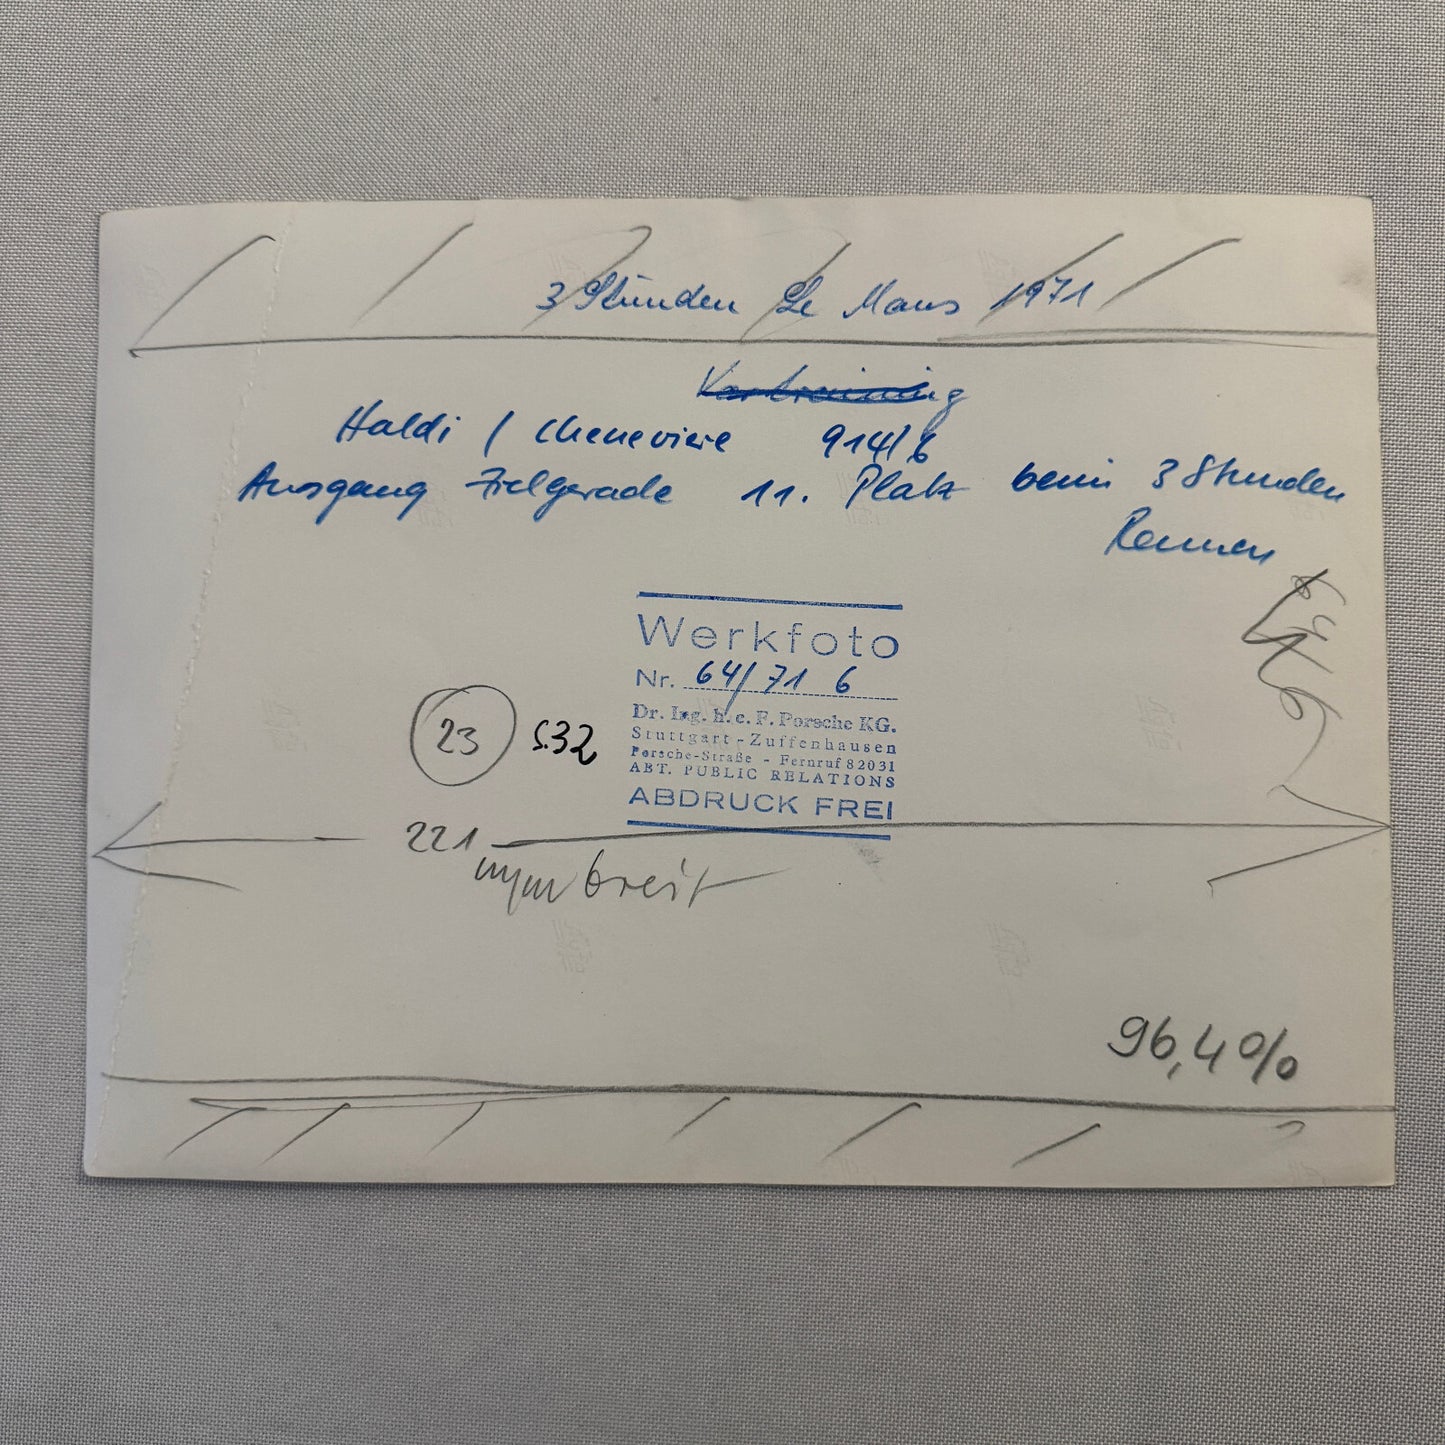 3 Stunden Le Mans 1971
Vortraining
Haldi / Cheneviere 914/6
Ausgang Zielgerade 11. Platz beim 3 Stunden
Rennen
Werkfoto
Nr. 64/71 6
Dr. Ing. h. c. F. Porsche KG.
Stuttgart - Zuffenhausen
Porsche-Straße - Fernruf 82031
ABT. PUBLIC RELATIONS
ABDRUCK FREI
23 S.32
221
breit
96,4%